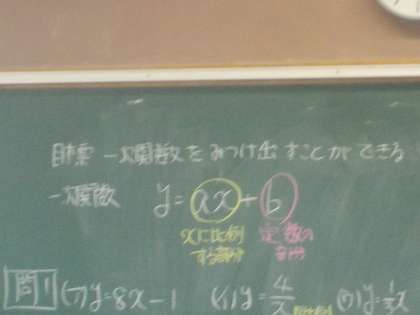 目標 一次関数をみつけ出すことができる
一次関数 y=ax+b
xに比例 定数の
する部分 部分
問1 (ア)y=8x-1 (イ)y=4/x (ウ)y=1/3x